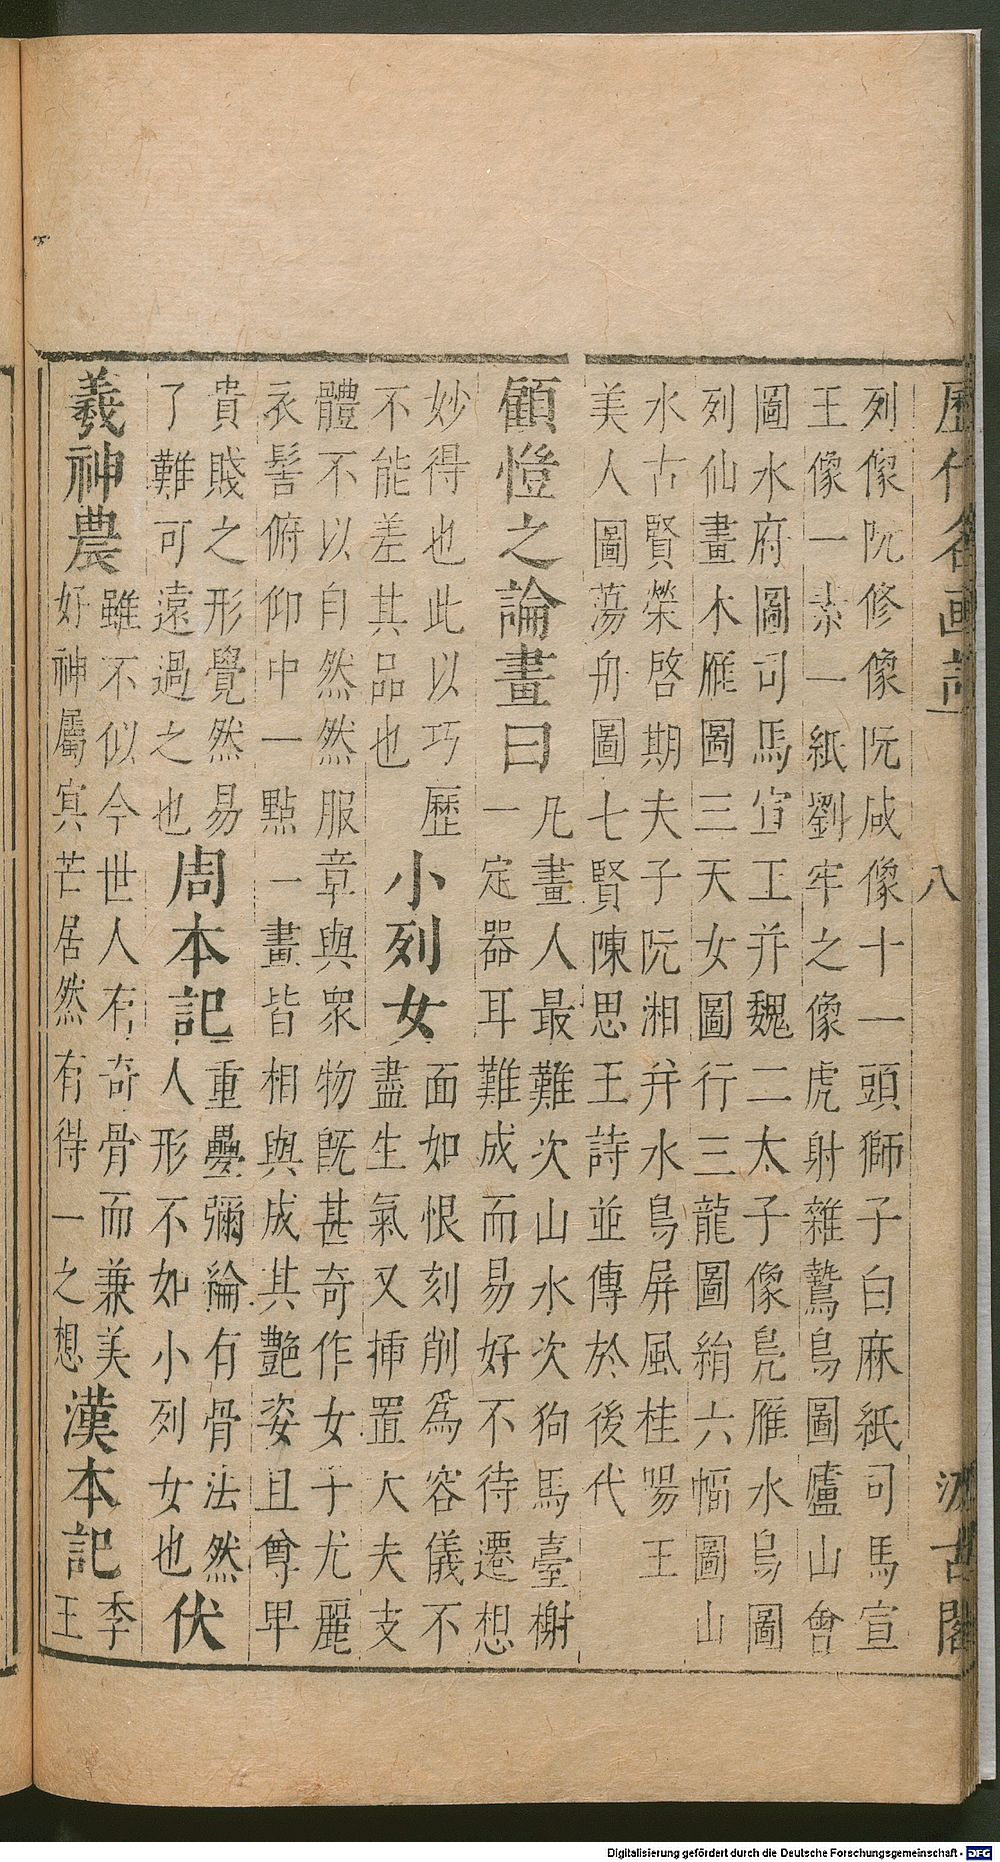 歷代名画記 八 汲古閣
列像阮修像阮咸像十一頭獅子白麻紙司馬宣
王像一素一紙劉牢之像虎射雜鷙鳥圖廬山會
圖水府圖司馬宣王并魏二太子像鳧雁水鳥圖
列仙畫木雁圖三天女圖行三龍圖絹六幅圖山
水古賢榮啓期夫子阮湘并水鳥屏風桂陽王
美人圖蕩舟圖七賢陳思王詩並傳於後代
顧愷之論畫曰
凡畫人最難次山水次狗馬臺榭
一定器耳難成而易好不待遷想
妙得也此以巧歷
不能差其品也
小列女
面如恨刻削爲容儀不
盡生氣又揷置大夫支
體不以自然然服章與衆物旣甚奇作女子尤麗
衣髻俯仰中一點一畫皆相與成其艷姿且尊卑
貴賤之形覺然易
了難可遠過之也
周本記
重疊彌綸有骨法然
人形不如小列女也
伏
羲神農
雖不似今世人有奇骨而兼美
好神屬冥芒居然有得一之想
漢本記
李
王
Digitalisierung gefördert durch die Deutsche Forschungsgemeinschaft - DFG